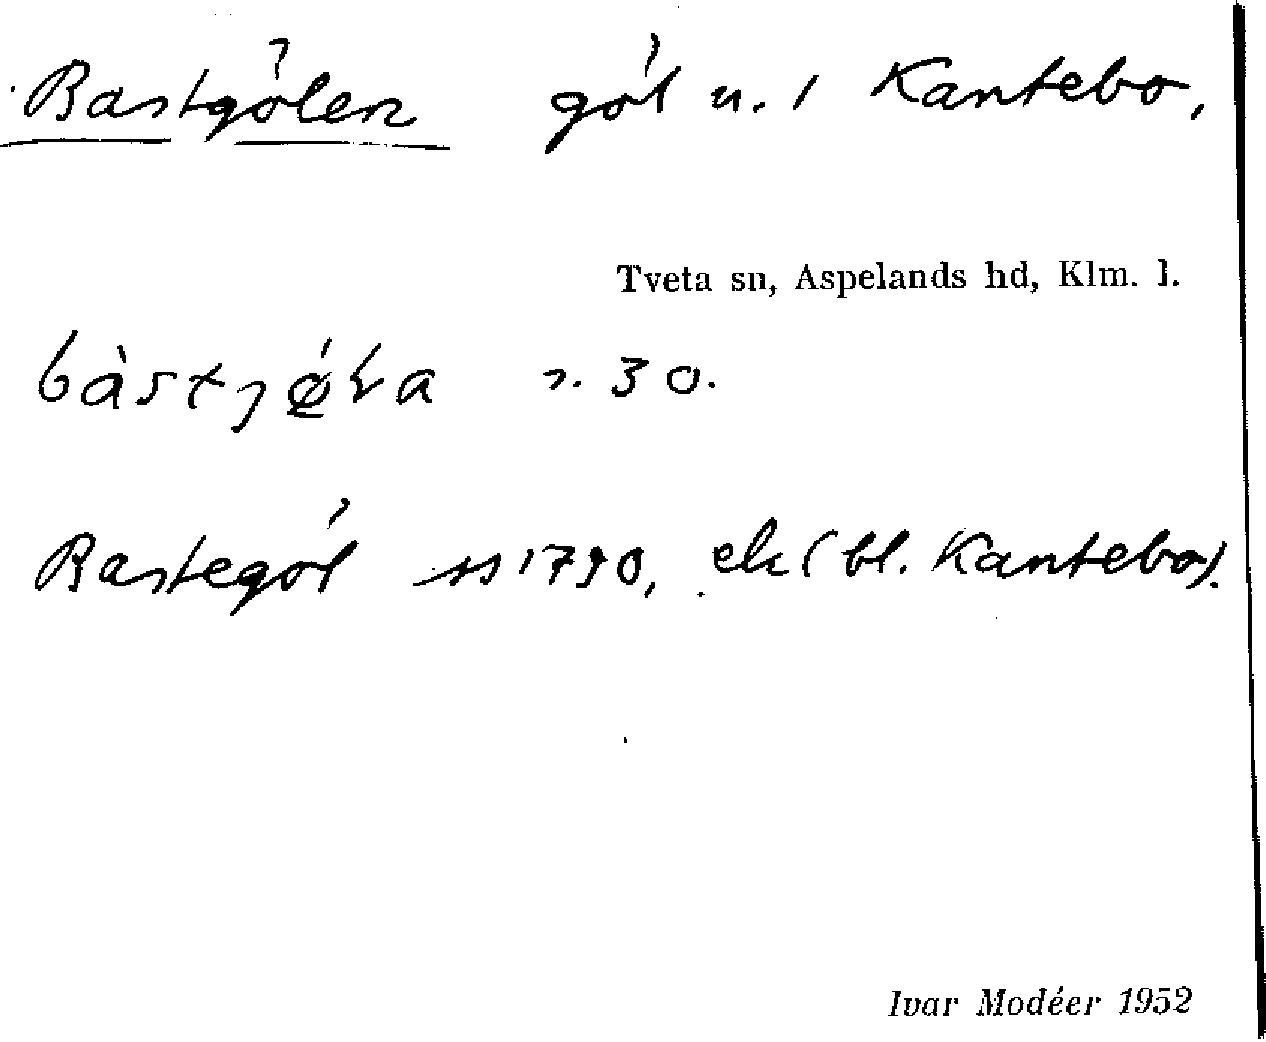 Bastgölen göl u. 1 Kantebo,
Tveta sn, Aspelands hd, Klm. l.
30.
Bastegöl 1790, ek (bl. Kantebo).
Ivar Modéer 1952